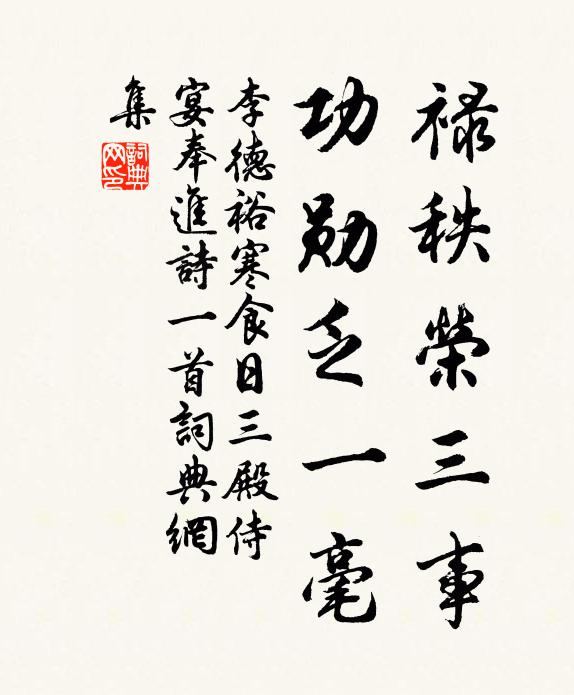 禄秩榮三事
功勋乏一毫
李德裕寒食日三殿侍
宴奉進詩一首詞典網
集
詞典
网印